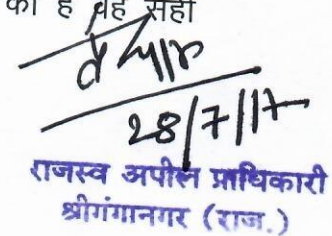 की है वह सही
28/7/17
राजस्व अपील प्राधिकारी
श्रीगंगानगर (राज.)